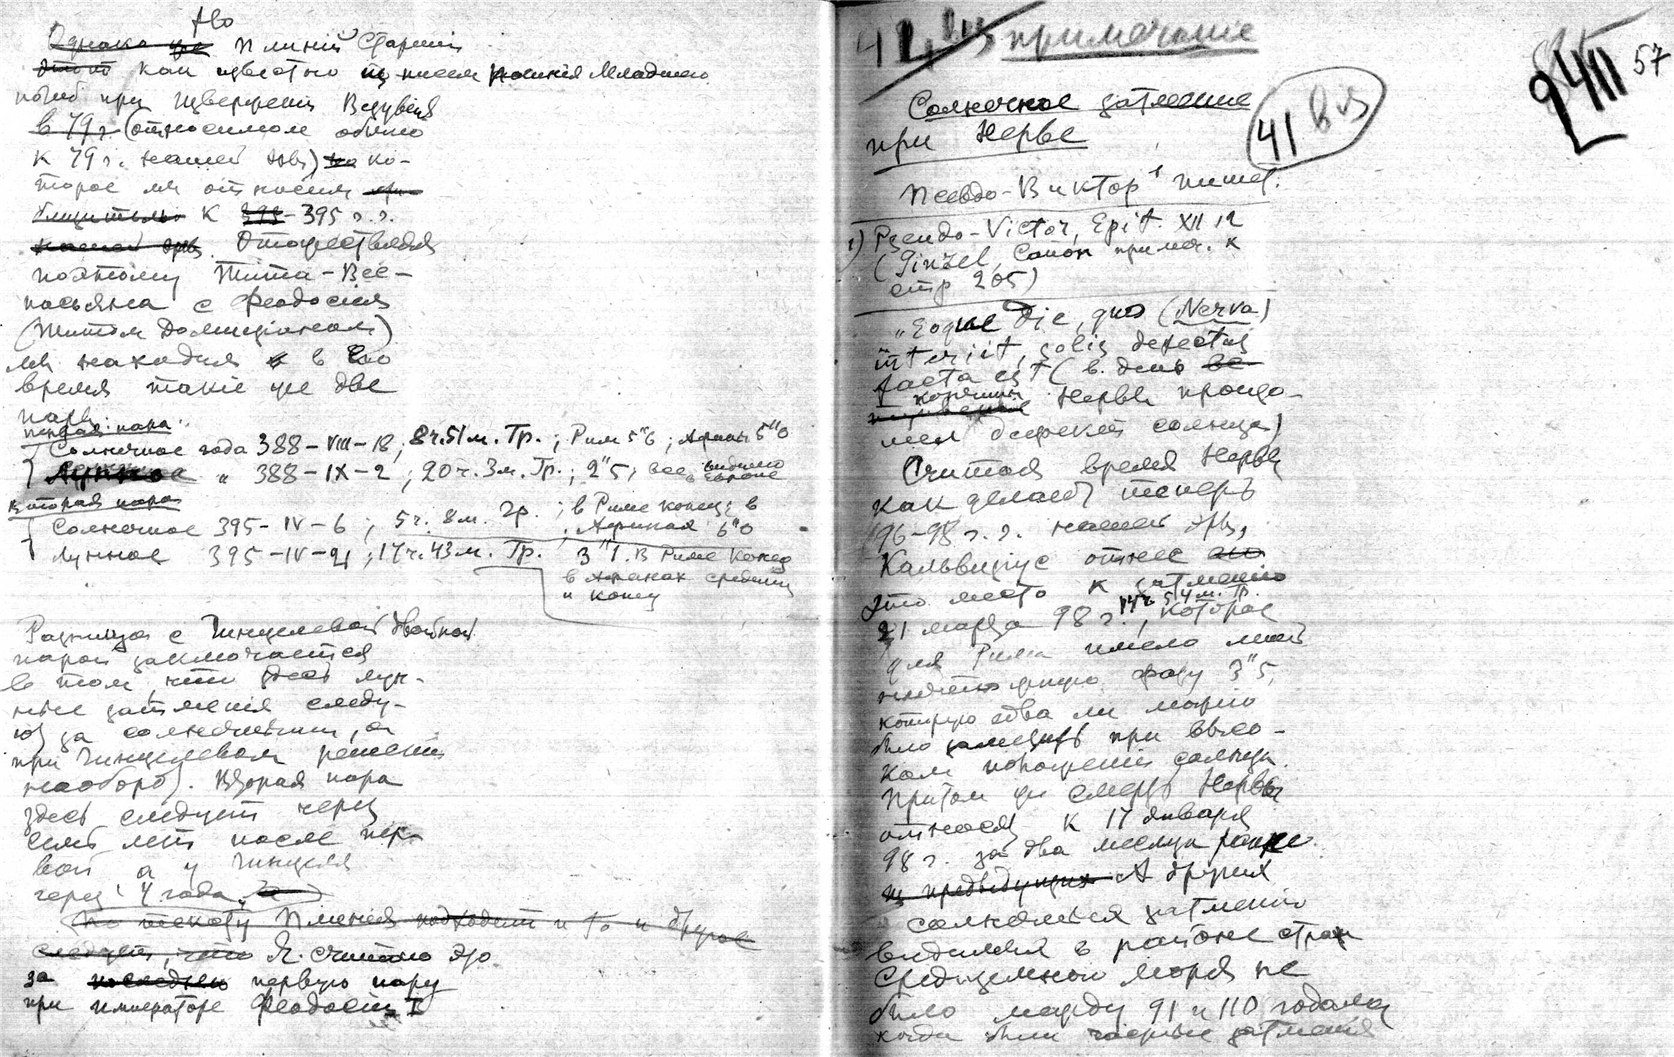 Но
Однако же Плиний Старший
этот как известно из писем Плиния Младшего
погиб при извержении Везувия
в 79 г (относимом обычно
к 79 г. нашей эры) но ко-
торое мы относим при-
близительно к 393-395 г.г.
нашей эры. Отождествляя
поэтому Тита-Вес-
пасьяна с Феодосием
(Титом Домицианом)
мы находим в его
время такие же две
пары:
первая пара:
Солнечное года 388-VIII-18, 8ч.51м. Гр.; Рим 5"6; Афины 5"0
Лунное " 388-IX-2, 20ч. 3м. Гр.; 2"5; все видимо в Европе
Вторая пара
Солнечное 395-IV-6; 5ч. 8м. Гр.; в Риме конец; в
Афинах 6"0
Лунное 395-IV-21; 17ч.43м. Гр. 3"1. В Риме конец
в Афинах средина
и конец
Разница с Гинцелевой двойной
парой заключается
в том, что здесь лун-
ные затмения следу-
ют за солнечными, а
при Гинцелевом решении
наоборот. Вторая пара
здесь следует через
семь лет после пер-
вой а у Гинцеля
через 4 года.
По тексту Плиния подходит и то и другое
следует, что Я считаю это
за последнею первую пару
при императоре Феодосии I
42, примечание
57
Солнечное затмение
при Нерве
41
Псевдо-Виктор¹ пишет:
1) Pseudo-Victor, Epit. XII 12
(Ginzel, Canon примеч. к
стр 205)
"Eoque die, quo (Nerva)
interiit, solis defectus
facta est (в день
кончины Нервы произо-
шел дефект солнца)
Считая время Нервы
как делают теперь
(96-98 г.г. нашей эры,
Кальвизиус отнес
это место к затмению
21 марта 98 г., 14ч 54м. Гр. которое
для Рима имело лишь
фазу 3"5,
которую едва ли можно
было заметить при высо-
ком положении солнца.
Притом же смерть Нервы
относят к 17 января
98 г. за два месяца ранее
из предыдущих А других
солнечных затмений
видимых в районе стран
Средиземного моря не
было между 91 и 110 годами
когда были частные затмения